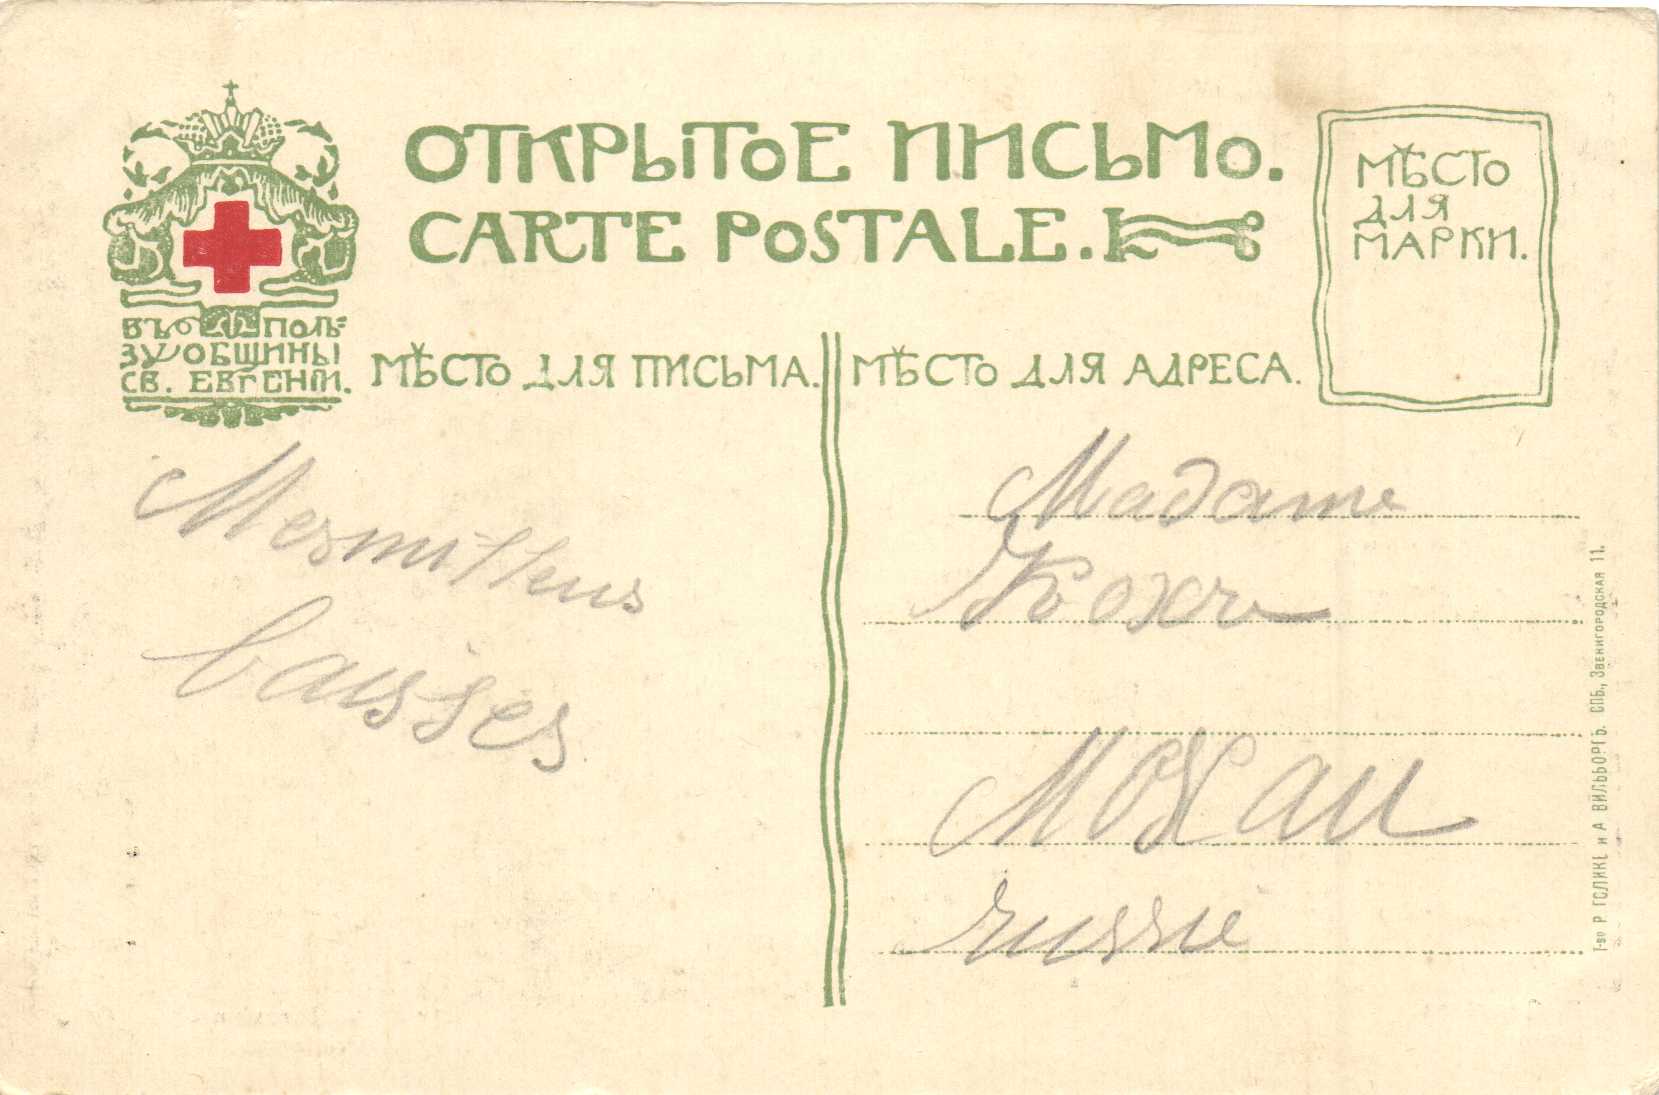 ОТКРЫТОЕ ПИСЬМО.
CARTE POSTALE.
МѢСТО
ДЛЯ
МАРКИ.
ВЪ ПОЛЬ=
ЗУ ОБЩИНЫ
СВ. ЕВГЕНІИ.
МѢСТО ДЛЯ ПИСЬМА.
МѢСТО ДЛЯ АДРЕСА.
baisses
Madame
Russie
Т-во Р. ГОЛИКЕ и А. ВИЛЬБОРГЪ. СПБ., Звенигородская 11.